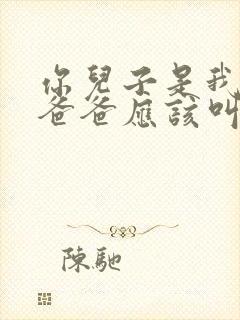 你兒子是我
爸爸應該叫
陳馳